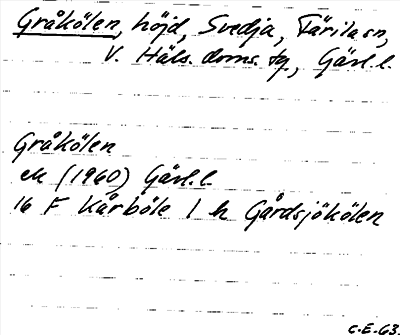 Gråkölen, höjd, Svedja, Färila sn,
V. Häls. doms. tg., Gävl. l.
Gråkölen
ek (1960) Gävl. l.
16 F Kårböle 1 h Gårdsjökölen
C.E.63.